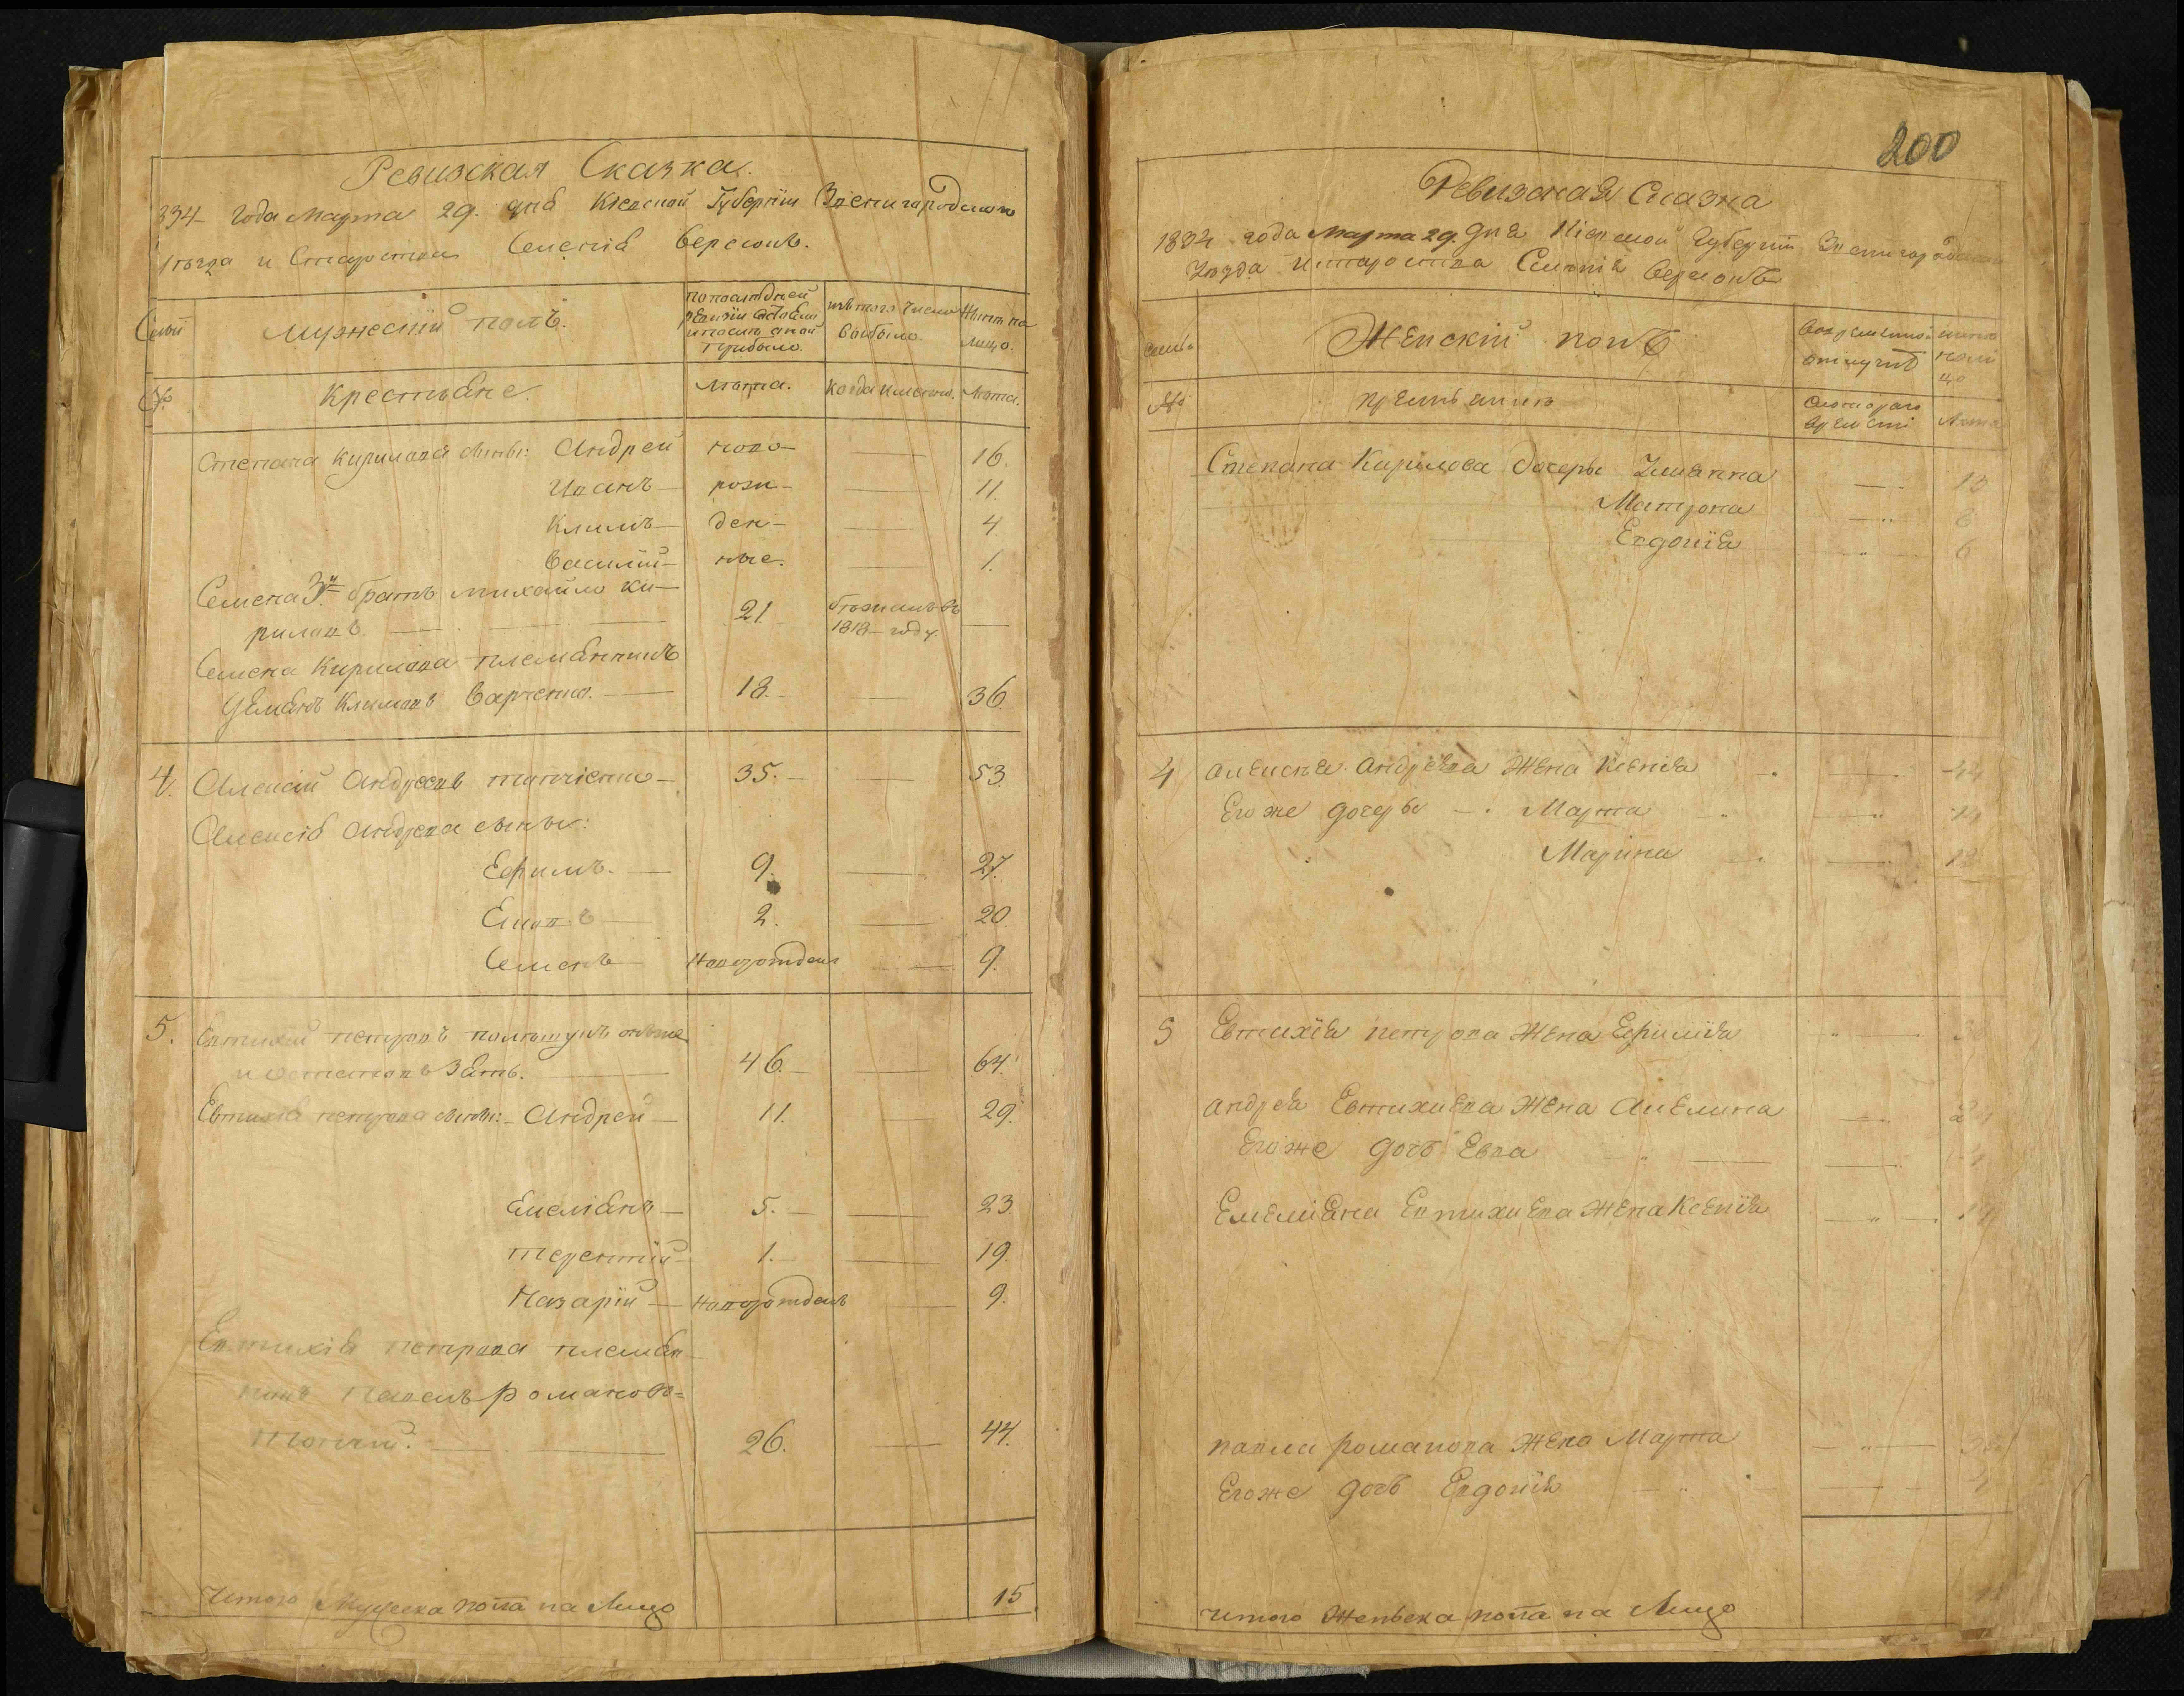 Ревизская Сказка.
834 года Марта 29. дня Кіевской Губерніи Звенигородскаго
уѣзда и Староства Селенія
Семьи
Мужескій полъ.
по последней
ревизіи состояли
и после оной
прибыло.
изъ того числа
выбыло
Нынѣ на
лицо.
№
Крестьяне.
лѣта.
когда именно.
Лѣта.
Степана Кирилова сыны: Андрей ново— — 16.
Иванъ— рожн— — 11.
Климъ— ден— — 4.
Василій— ные. — 1.
Семена 3й братъ Михайло Ки—
риловъ — 21 бежалъ въ
1818 году. —
Семена Кирилова племянникъ
Демянъ Климовъ — 18. — 36.
4. Алексій Андреевъ — 35. — 53.
Алексія Андреева сыны:
Ефимъ. — 9. — 27.
2. — 20
Семенъ — Новорожденъ — 9.
5. Евтихій Петровъ
зять. — 46. — 64.
Евтихія Петрова сыны: Андрей — 11. — 29.
Емеліянъ — 5. — 23.
Терентій — 1. — 19.
Назарій — Новорожденъ — 9.
Евтихія Петрова племян—
никъ Павелъ Романовъ=
— 26. — 44.
Итого Мужеска пола на Лицо 15
200
Ревизская Сказка
1834 года Марта 29. дня Кіевской Губерніи Звенигородскаго
Уѣзда Истароства Селенія
семьи
Женскій полъ
во временной
отлучкѣ
нынѣ
на ли
цо
№
Крестьянки
съ котораго
времени
Лѣта
Степана Кирилова дочеры Уліянна — 13
Матрона — 8
Евдокія — 6
4 Алексѣя Андреева Жена Ксенія —
Его же дочеры — Марта —
Марина — 13
5 Евтихія Петрова Жена Ефимія —
Андрея Евтихиева Жена Акелина —
Егоже дочь Евва —
Емелияна Евтихиева Жена Ксенія —
Павла Романова Жена Марта —
Егоже дочь Евдокія —
Итого Женьска пола на Лицо